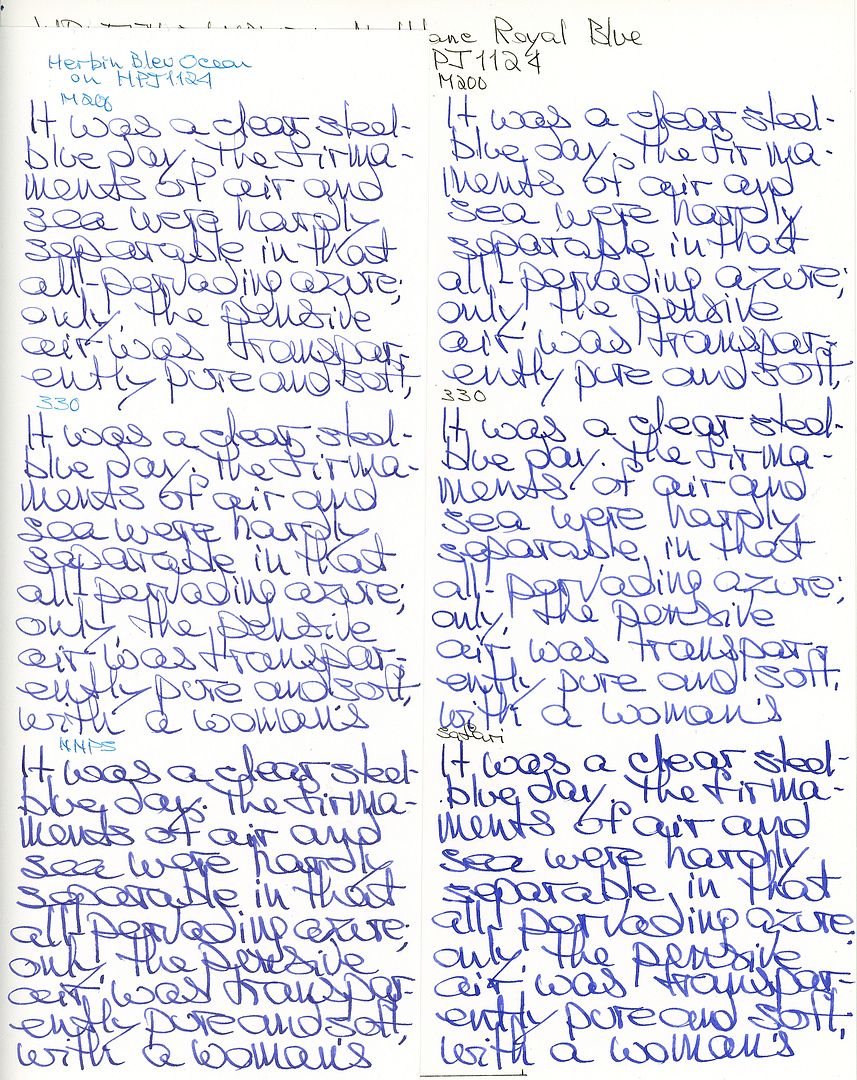 Herbin Bleu Ocean
on HPJ1124
M200
It was a clear steel-
blue day. The firma-
ments of air and
sea were hardly
separable in that
all-pervading azure;
only, the pensive
air was transpar-
ently pure and soft,
330
It was a clear steel-
blue day. The firma-
ments of air and
sea were hardly
separable in that
all-pervading azure;
only, the pensive
air was transpar-
ently pure and soft,
with a woman's
NNPS
It was a clear steel-
blue day. The firma-
ments of air and
sea were hardly
separable in that
all-pervading azure;
only, the pensive
air was transpar-
ently pure and soft,
with a woman's
Royal Blue
PJ1124
M200
It was a clear steel-
blue day. The firma-
ments of air and
sea were hardly
separable in that
all-pervading azure;
only, the pensive
air was transpar-
ently pure and soft,
330
It was a clear steel-
blue day. The firma-
ments of air and
sea were hardly
separable, in that
all-pervading azure;
only, the pensive
air was transpar-
ently pure and soft,
with a woman's
Safari
It was a clear steel-
blue day. The firma-
ments of air and
sea were hardly
separable, in that
all-pervading azure;
only, the pensive
air was transpar-
ently pure and soft,
with a woman's